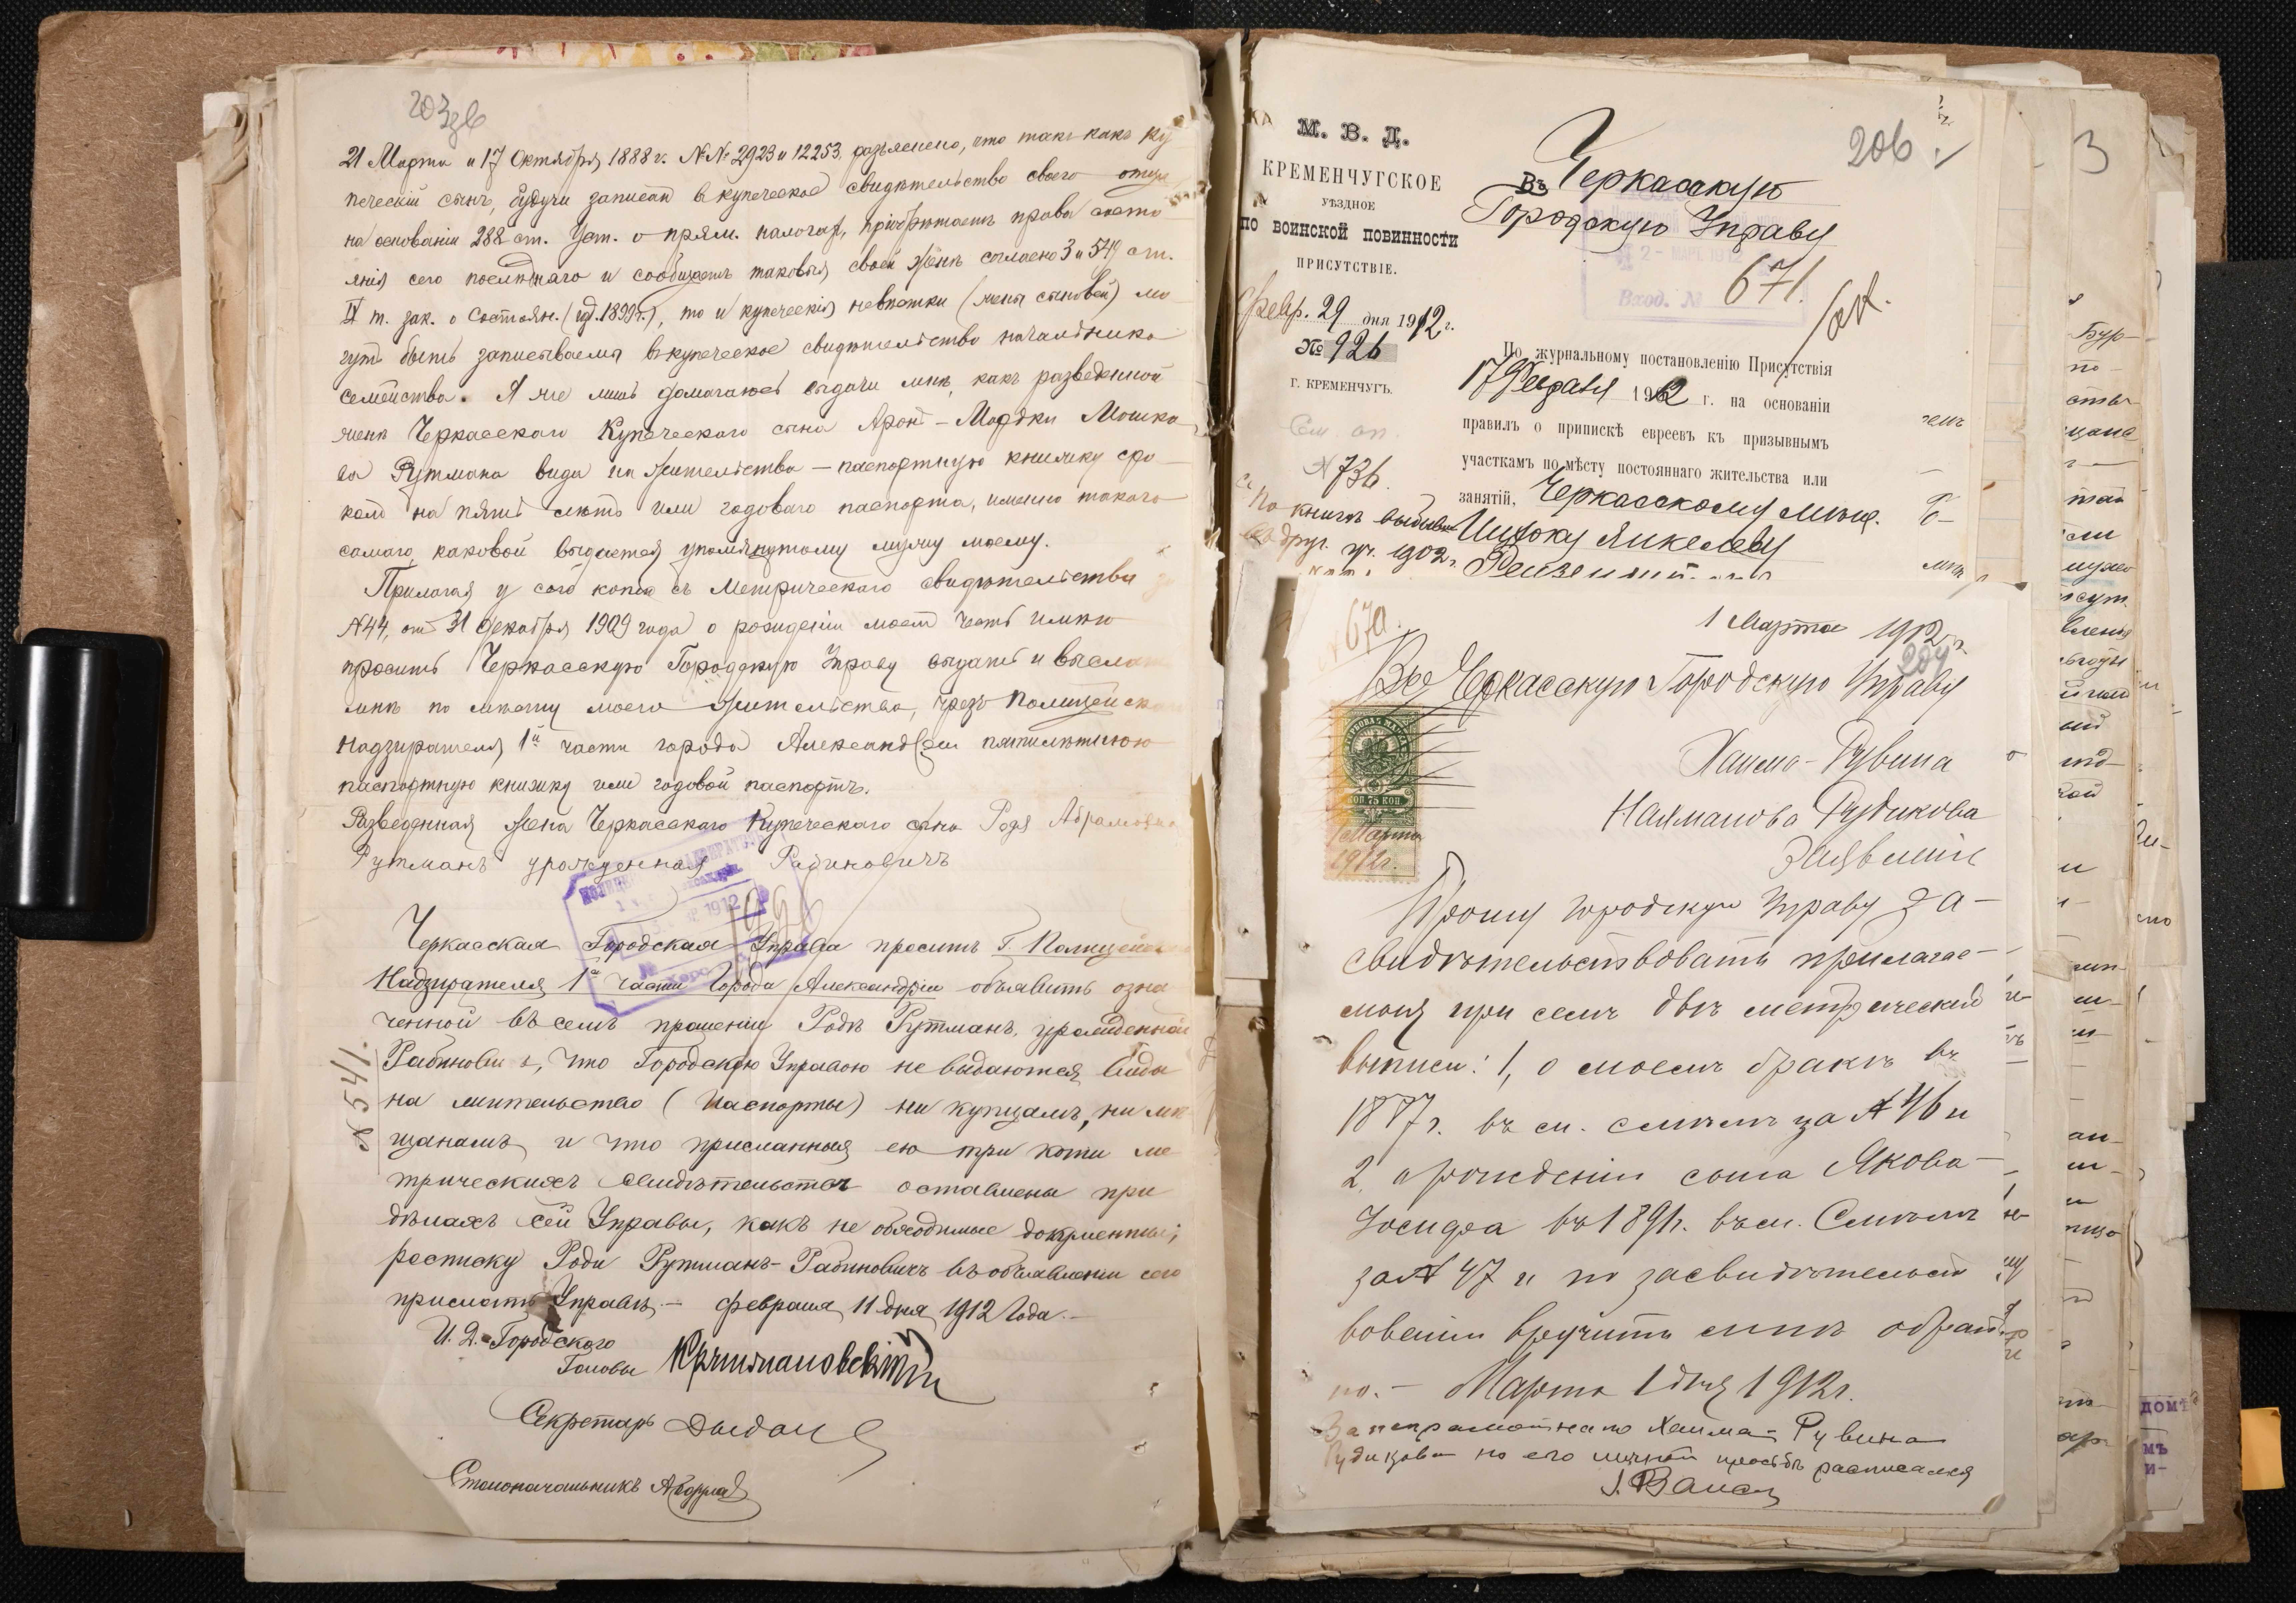 203об
21 Марта и 17 Октября 1888 г. №№ 2923 и 12253, разъяснено, что такъ какъ ку
печескій сынъ, будучи записан в купеческое свидѣтельство своего отца
на основаніи 288 ст. Уст. о прям. налогах, пріобрѣтаетъ права состо
янія сего послѣдняго и сообщаетъ таковыя своей женѣ согласно 3 и 549 ст.
IX т. зак. о Состоян. (изд. 1899 г.), то и купеческія невѣстки (жены сыновей) мо
гутъ быть записываемы въ купеческое свидѣтельство начальника
семейства. Я же лишь домагаюсь выдачи мнѣ, какъ разведенной
женѣ Черкасскаго Купеческого сына Арон-Мордки Мошко
ва Рутмана вида на жительство – паспортную книжку сро
комъ на пять лѣтъ или годового паспорта, именно такого
самаго, каковой выдается упомянутому мужу моему.
Прилагая у сего копію съ Метрическаго свидѣтельства за
№ 44, от 31 Декабря 1909 года о рожденіи моем честь имѣю
просить Черкасскую Городскую Управу выдать и выслать
мнѣ по мѣсту моего жительства, чрезъ Полицейска
Надзирателя 1й части города Александріи пятилѣтнюю
паспортную книжку или годовой паспортъ.
Разведенная жена Черкасскаго Купеческаго сына Родя Абрамовна
Рутманъ урожденная Рабиновичъ
Черкасская Городская Управа проситъ Г. Полицейск
Надзирателя 1й части Города Александріи объявить озна
ченной въ семъ прошеніи Родѣ Рутманъ, урожденной
Рабинович, что Городскою Управою не выдаются виды
на жительство (паспорты) ни купцамъ, ни мѣ
щанамъ и что присланныя ею три копіи ме
трическихъ свидѣтельствъ оставлены при
дѣлахъ сей Управы, какъ необходимые документы;
росписку Роди Рутманъ-Рабиновичъ въ объявленіи сего
прислать Управѣ. – Февраля 11 дня 1912 года. –
№ 541.
И. Д. Городского
Головы
Секретарь
Столоначальникъ
М. В. Д.
КРЕМЕНЧУГСКОЕ
УѢЗДНОЕ
ПО ВОИНСКОЙ ПОВИННОСТИ
ПРИСУТСТВІЕ.
Февр. 29 дня 1912 г.
№ 926
Г. КРЕМЕНЧУГЪ.
№ 736.
206
Въ Черкасскую
Городскую Управу
Вход. № 671.
По журнальному постановленію Присутствія
17 Февраля 1912 г. на основаніи
правилъ о припискѣ евреевъ къ призывнымъ
участкамъ по мѣсту постояннаго жительства или
занятій, Черкасскому мѣщ.
Ицьку Янкелеву
1 Марта 1912 г.
204
670.
Въ Черкасскую Городскую Управу
Хаима-Рувина
Нахманова Рудикова
Заявленіе
КОП 75 КОП.
1 Марта
1912 г.
Прошу городскую Управу за-
свидѣтельствовать прилагае-
мыя при семъ двѣ метрическія
выписи: 1, о моемъ бракѣ въ
1887 г. въ м. Смѣлѣ за № 46 и
2, о рожденіи сына Якова-
Іосифа въ 1891 г. въ м. Смѣлѣ
за № 47 и по засвидѣтельст
вованіи вручить мнѣ обрат
но. – Марта 1 дня 1912 г.
За неграмотнаго Хаима-Рувина
Рудикова по его личной просьбѣ расписался
3